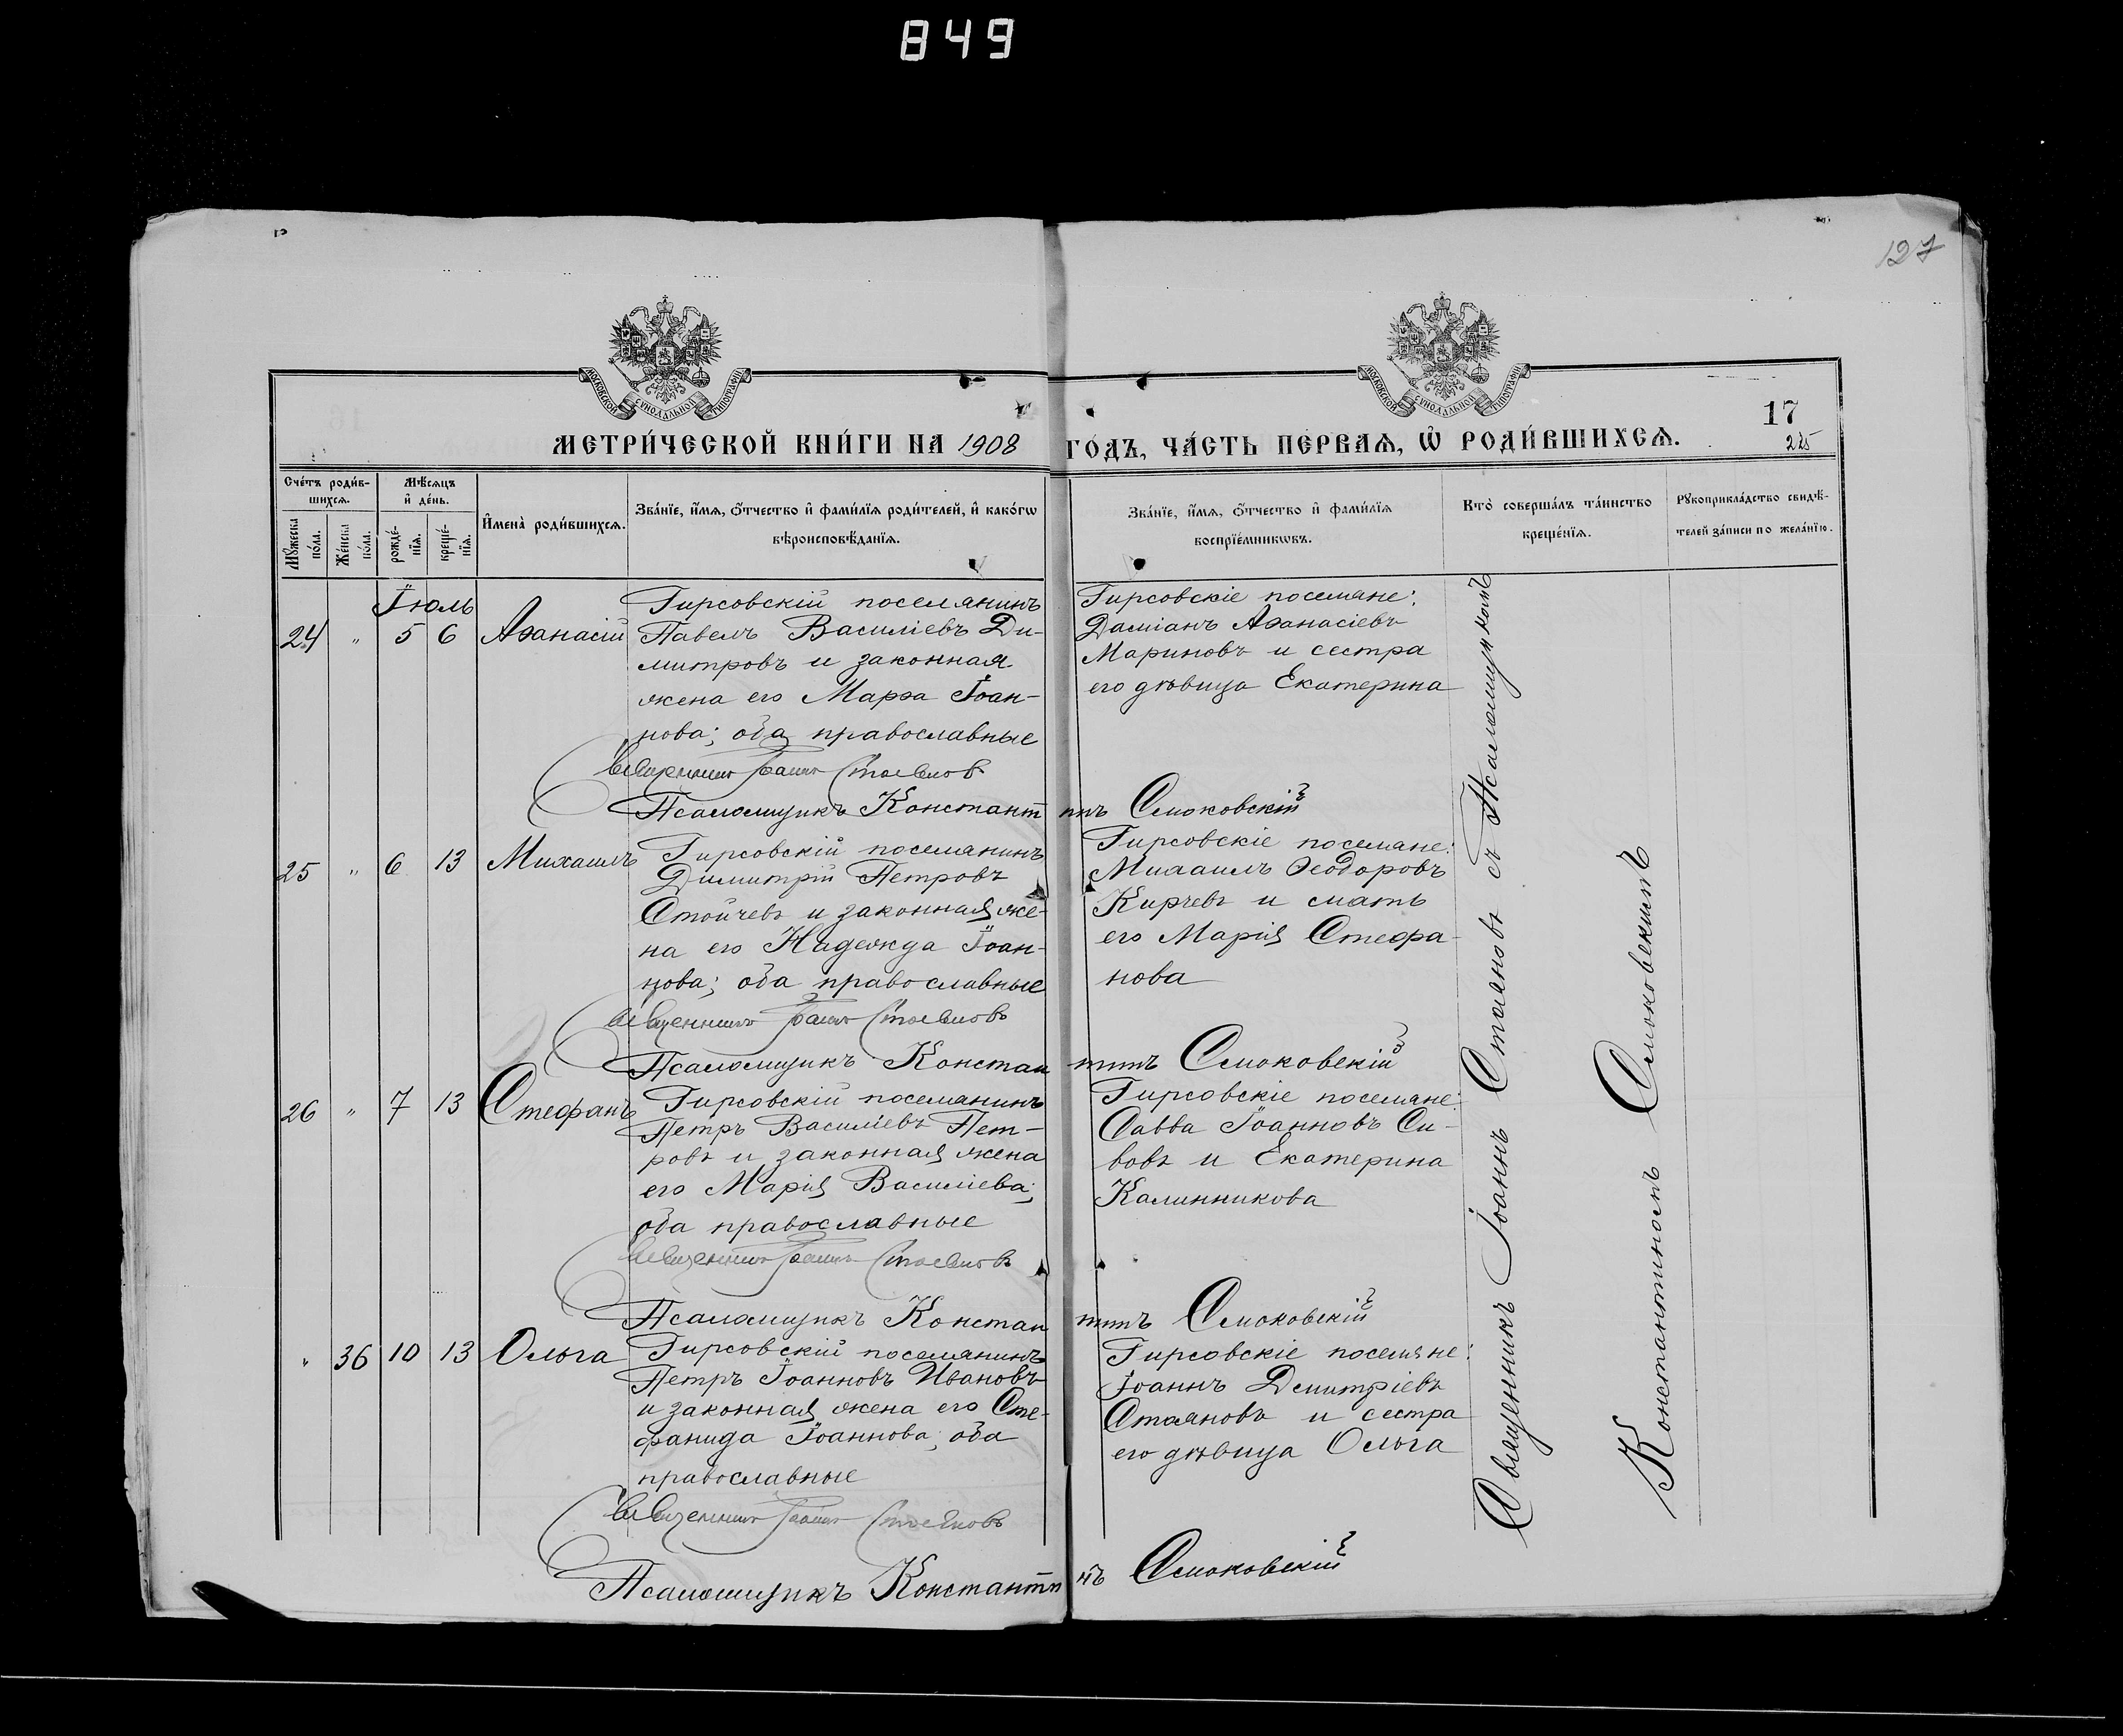 849
127
МОСКОВСКОЙ СѴНОДАЛЬНОЙ ТИПОГРАФІИ
МОСКОВСКОЙ СѴНОДАЛЬНОЙ ТИПОГРАФІИ
17
225
МЕТРИ́ЧЕСКОЙ КНИ́ГИ НА 1908 ГО́ДЪ, ЧА́СТЬ ПЕ́РВАѦ, Ѡ҆ РОДИ́ВШИХСѦ.
Сче́тъ роди́в-
шихсѧ.
Мꙋ́жеска
по́ла.
Же́нска
по́ла.
Мѣ́сѧцъ
и҆ де́нь.
рожде́-
нїѧ.
креще́-
нїѧ.
И҆мена̀ роди́вшихсѧ.
Зва́нїе, и҆́мѧ, ѻ҆́тчество и҆ фами́лїѧ роди́телей, и҆ како́гѡ
вѣроисповѣ́данїѧ.
Зва́нїе, и҆́мѧ, ѻ҆́тчество и҆ фами́лїѧ
воспрїе́мникѡвъ.
Кто̀ соверша́лъ та́инство
креще́нїѧ.
Рꙋкоприкла́дство свидѣ́-
телей за́писи по жела́нїю.
Іюль
24 " 5 6 Аѳанасій
Гирсовскій поселянинъ
Павелъ Василіевъ Ди-
митровъ и законная
жена его Марѳа Іоан-
нова; оба православные
Гирсовскіе поселяне:
Даміанъ Аѳанасіевъ
Мариновъ и сестра
его дѣвица Екатерина
Священникъ Іоаннъ Стояновъ
Псаломщикъ Константинъ Смоковскій
25 " 6 13 Михаилъ
Гирсовскій поселянинъ
Димитрій Петровъ
Стойчевъ и законная же-
на его Надежда Іоан-
нова; оба православные
Гирсовскіе поселяне:
Михаилъ Ѳеодоровъ
Кирчевъ и мать
его Марія Стефа-
нова
Священникъ Іоаннъ Стояновъ
Псаломщикъ Константинъ Смоковскій
26 " 7 13 Стефанъ
Гирсовскій поселянинъ
Петръ Василіевъ Пет-
ровъ и законная жена
его Марія Василіева;
оба православные
Гирсовскіе поселяне:
Савва Іоанновъ Си-
вовъ и Екатерина
Калинникова
Священникъ Іоаннъ Стояновъ
Псаломщикъ Константинъ Смоковскій
" 36 10 13 Ольга
Гирсовскій поселянинъ
Петръ Іоанновъ Ивановъ
и законная жена его Сте-
фанида Іоаннова; оба
православные
Гирсовскіе поселяне:
Іоаннъ Димитріевъ
Стояновъ и сестра
его дѣвица Ольга
Священникъ Іоаннъ Стояновъ
Псаломщикъ Константинъ Смоковскій
Священникъ Іоаннъ Стояновъ съ Псаломщикомъ
Константиномъ Смоковскимъ